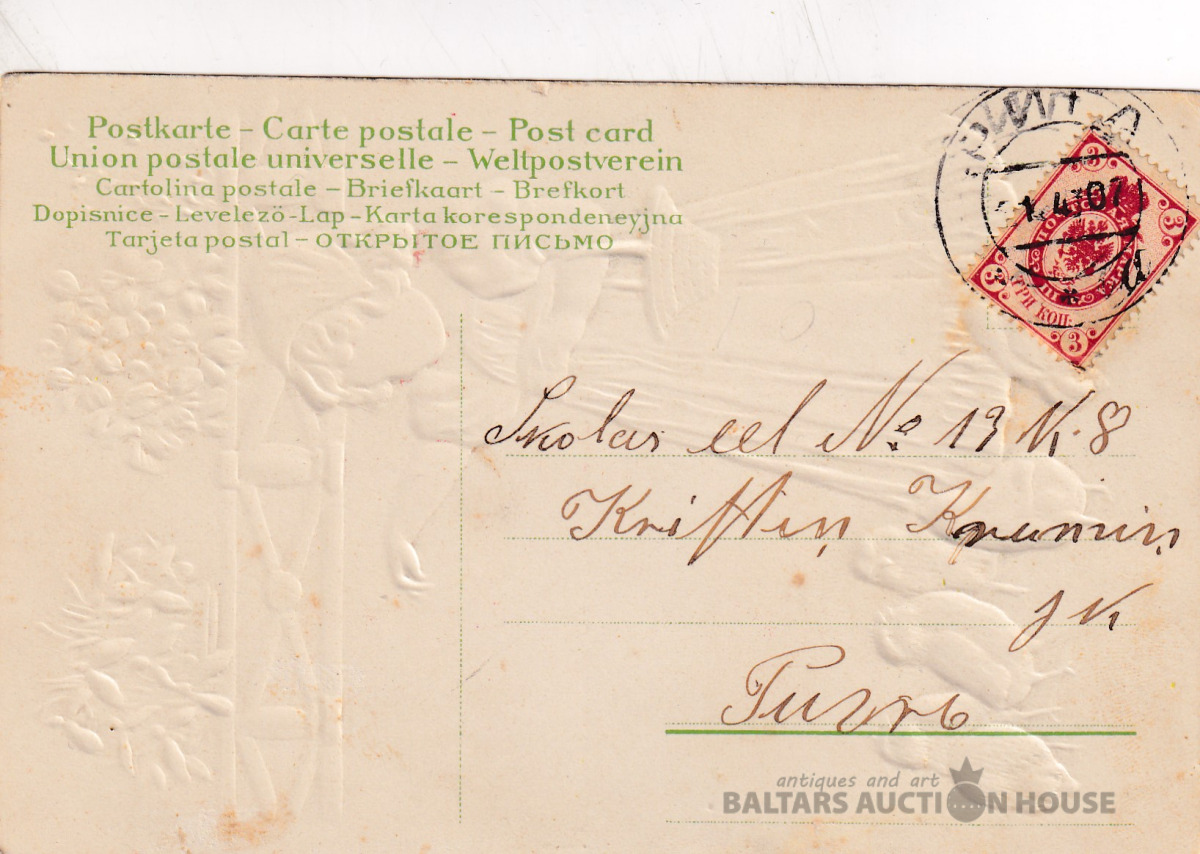 Postkarte – Carte postale – Post card
Union postale universelle – Weltpostverein
Cartolina postale – Briefkaart – Brefkort
Dopisnice - Levelezö - Lap - Karta korespondeneyjna
Tarjeta postal – ОТКРЫТОЕ ПИСЬМО
РИГА
1.4.07
a
3
3
3
3
ПОЧТОВАЯ МАРКА
ТРИ КОП.
Skolas eel № 13 K. 8
Kristiņ Krumiņ
jk
antiques and art
BALTARS AUCTION HOUSE